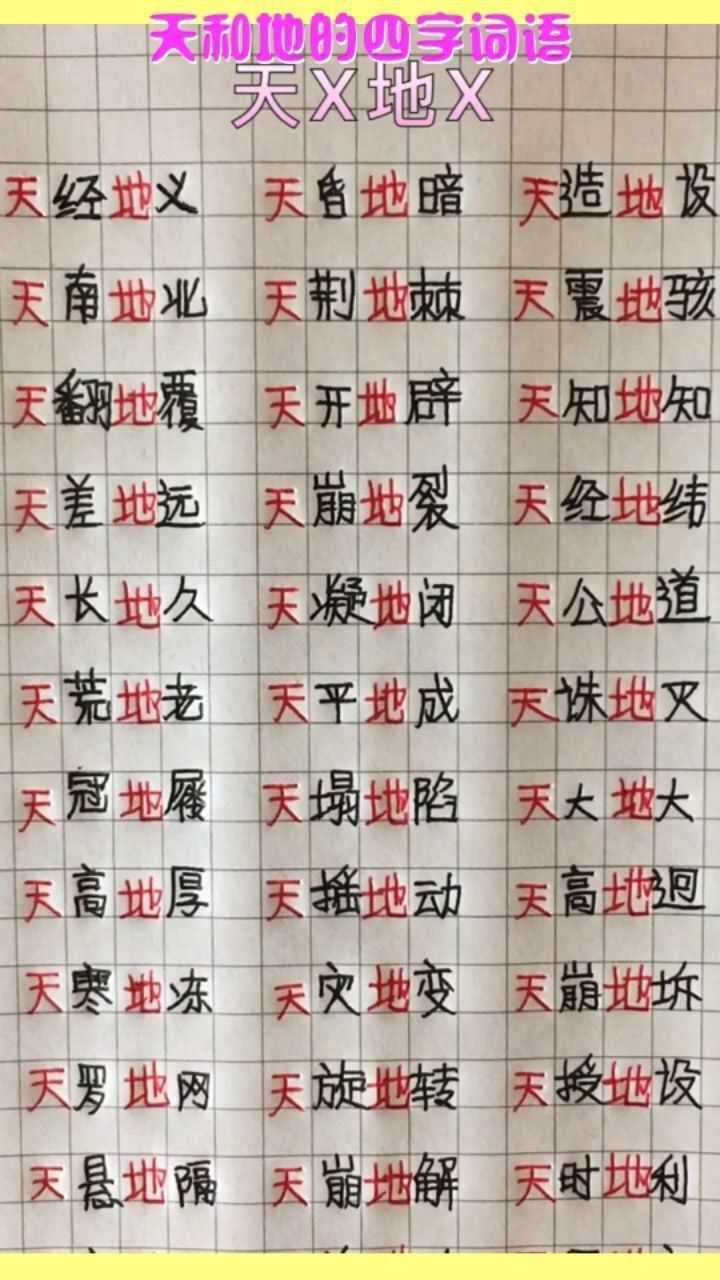 天和地的四字词语
天X地X
天经地义 天昏地暗 天造地设
天南地北 天荆地棘 天震地骇
天翻地覆 天开地辟 天知地知
天差地远 天崩地裂 天经地纬
天长地久 天凝地闭 天公地道
天荒地老 天平地成 天诛地灭
天冠地履 天塌地陷 天大地大
天高地厚 天摇地动 天高地迥
天寒地冻 天灾地变 天崩地坼
天罗地网 天旋地转 天授地设
天悬地隔 天崩地解 天时地利